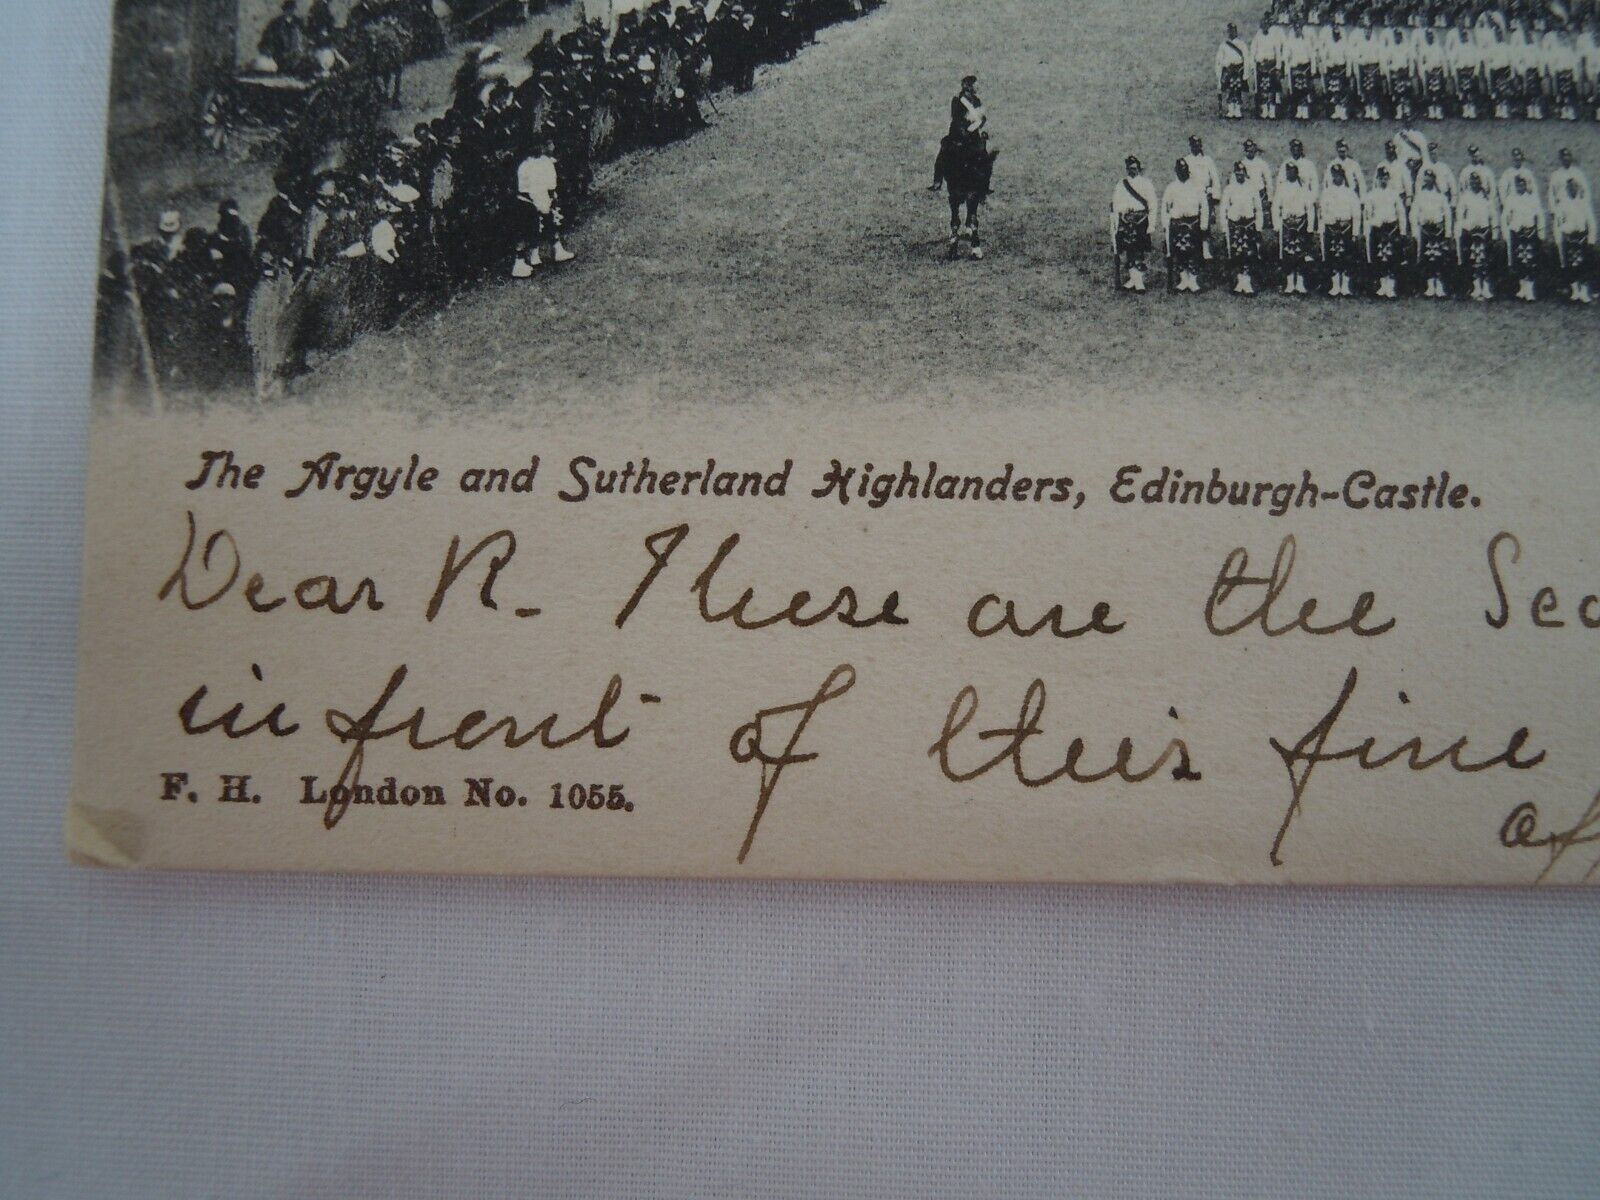 The Argyle and Sutherland Highlanders, Edinburgh-Castle.
Dear R. These are the
in front of this fine
F. H. London No. 1055.